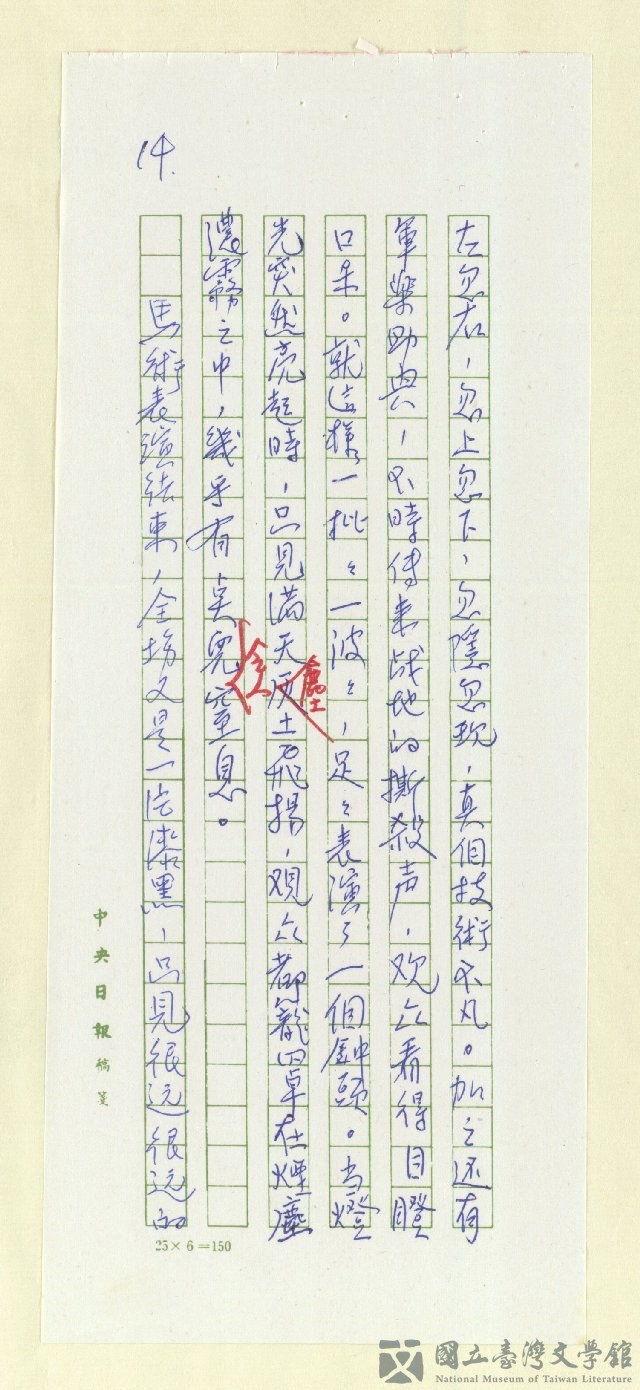 14.
左忽右，忽上忽下，忽隱忽現，真個技術不凡。加之还有
軍樂助興，不時傳来战地的撕殺声，观众看得目瞪
口呆。就這様一批々一波々，足々表演了一個鈡頭。当燈
光突然亮起時，只見滿天灰土飛揚，观众都籠罩在煙塵
塵土
濃霧之中，幾乎有奌兒窒息。
馬術表演结束，全場又是一片漆黑，只見很远很远的
中央日報稿箋
25×6=150
國立臺灣文學館
National Museum of Taiwan Literature